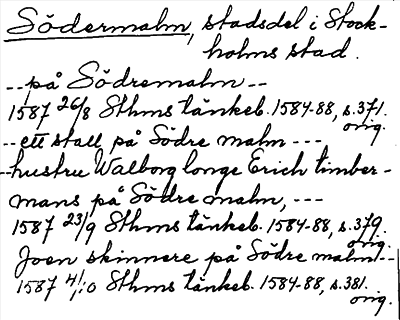 Södermalm, stadsdel i Stock-
holms stad.
--på Södremalm--
1587 26/8 Sthms tänkeb. 1584-88, s.371.
orig.
--ett stall på Södre malm---
--hustru Walborg longe Erich timber-
mans på Södre malm,---
1587 23/9 Sthms tänkeb. 1584-88, s.379.
orig.
Joen skinnere på Södre malm--
1587 4/10 Sthms tänkeb. 1584-88, s.381.
orig.